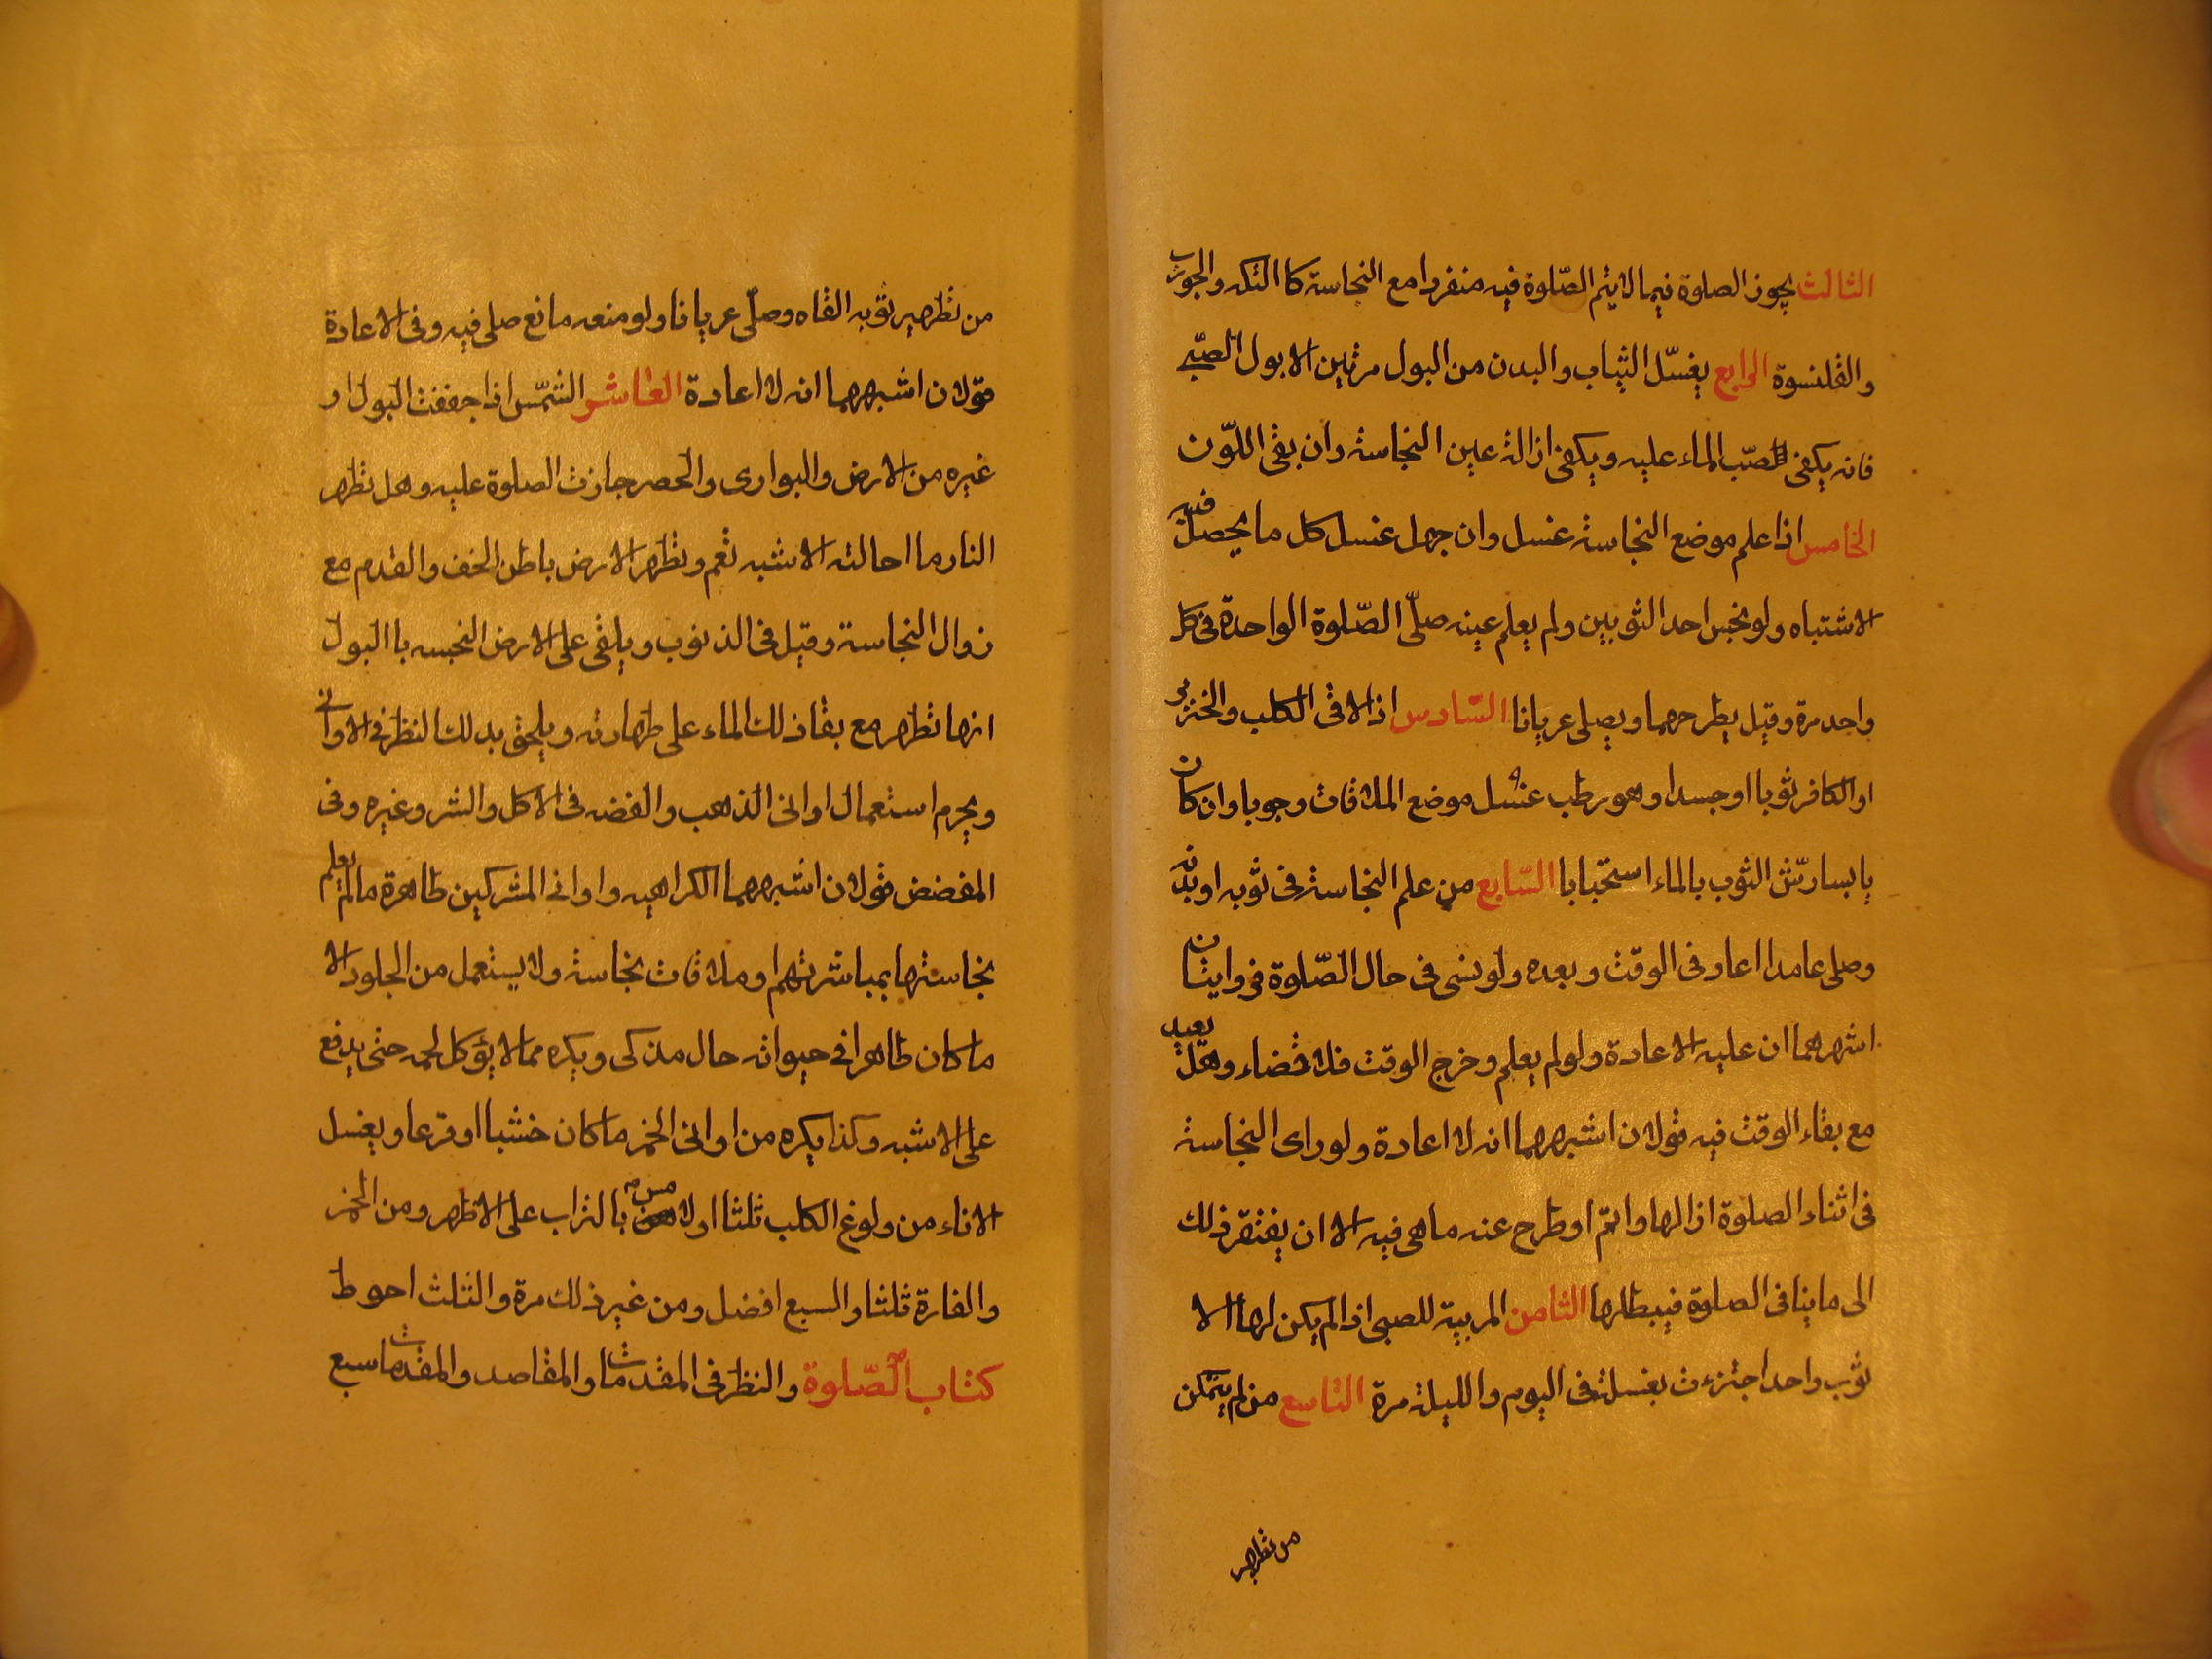 الثالث يجوز الصلوة فيما لا يتم الصّلوة فيه منفردا مع النجاسة كا التكه والجورب
والقلنسوة الرابع يغسّل الثياب والبدن من البول مرتين الا بول الصبّي
فانه يكفى صّب الماء عليه ويكفى ازالة عين النجاسة وان بقى اللّون
الخامس اذا علم موضع النجاسة غسل وان جهل غسل كل ما يحصل فيه
الاشتباه ولو نجس احد الثوبين ولم يعلم عينه صلّى الصّلوة الواحدة فى كل
واحد مرة وقيل يطرحهما ويصلى عريانا السّادس اذا لاقى الكلب والخنزير
او الكافر ثوبا او جسدا وهو رطب غسل موضع الملاقات وجوبا وان كان
يابسا رشّ الثوب بالماء استحبابا السّابع من علم النجاسة فى ثوبه او بدنه
وصلى عامدا اعاد فى الوقت وبعده ولو نسى فى حال الصّلوة فروايتان
اشهرهما ان عليه الاعادة ولو لم يعلم وخرج الوقت فلا قضاء وهل يعيد
مع بقاء الوقت فيه قولان اشبههما انه لا اعادة ولو راى النجاسة
فى اثناء الصلوة ازالها واتمّ او طرح عنه ما هى فيه الا ان يفتقر ذلك
الى ما ينافى الصلوة فيبطلها الثامن المربية للصبى اذا لم يكن لها الا
ثوب واحد اجتزءت بغسله فى اليوم والليلة مرة التاسع من لم يتمكن
من تطهير
من تطهير ثوبه القاه وصلّى عريانا ولو منعه مانع صلى فيه وفى الاعادة
قولان اشبههما انه لا اعادة العاشر الشمّس اذا جففت البول او
غيره من الارض والبوارى والحصر جازت الصلوة عليه وهل تطهر
النار ما احالته الاشبه نعم وتطهر الارض باطن الخف والقدم مع
زوال النجاسة وقيل فى الذنوب ويلقى على الارض النجسه با البول
انها تطهر مع بقا ذلك الماء على طهارته ويلحق بذلك النظر فى الاوانى
ويحرم استعمال اوانى الذهب والفضه فى الاكل والشر وغيره وفى
المفضض قولان اشبههما الكراهيه واوانى المشركين طاهرة ما لم يعلم
نجاستها بمباشرتهم او ملاقات نجاسة ولا يستعمل من الجلود الا
ما كان طاهرا فى حيواته حال مذكى ويكره مما لا يؤكل لحمه حتى يدفع
على الاشبه وكذا يكره من اوانى الخمر ما كان خشبا او قرعا ويغسل
الاناء من ولوغ الكلب ثلثا اولا بالتراب على الاظهر ومن الخمر
والفارة ثلثا والسبع افضل ومن غير ذلك مرة والثلث احوط
كتاب الصّلوة والنظر فى المقدمات والمقاصد والمقدمات سبع